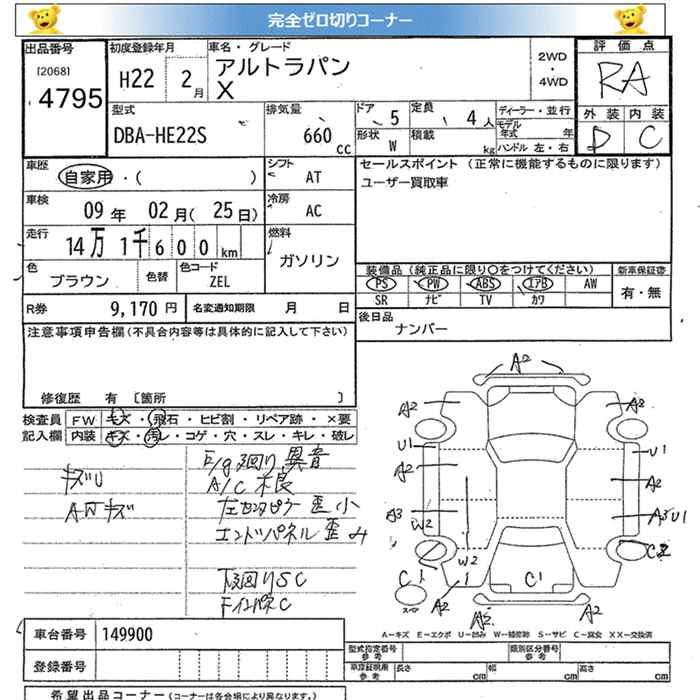 完全ゼロ切りコーナー
出品番号
[2068]
4795
初度登録年月
H22 2月
車名・グレード
アルトラパン
X
2WD
・
4WD
評価点
RA
外装 内装
D C
型式
DBA-HE22S
排気量
660 cc
ドア 5
定員 4人
形状 W
積載 kg
ディーラー・並行
モデル年式 年
ハンドル 左・右
車歴
自家用・( )
シフト
AT
セールスポイント (正常に機能するものに限ります)
ユーザー買取車
車検
09年 02月(25日)
冷房
AC
走行
14万1千600km
燃料
ガソリン
色
ブラウン
色替
色コード
ZEL
装備品(純正品に限り○をつけてください)
PS PW ABS エアB AW
SR ナビ TV カワ
新車保証書
有・無
R券 9,170円
名変通知期限 月 日
後日品
ナンバー
注意事項申告欄(不具合内容等は具体的に記入して下さい)
修復歴 有 [箇所 ]
検査員 FW キズ・飛石・ヒビ割・リペア跡・×要
記入欄 内装 キズ・汚レ・コゲ・穴・スレ・キレ・破レ
キズU
AWキズ
E/g廻り異音
A/C不良
左センタピラー歪小
エンドパネル歪み
下廻りSC
FインパネC
A2
A2 A2
U1 U1
A2 A2
A3 W2 A3 U1
W2
C1 C2
C1
スペア
A2 A2 A2
A―キズ E―エクボ U―凹み W―補修跡 S―サビ C―腐食 XX―交換済
車台番号 149900
登録番号
型式指定番号
参考
類別区分番号
参考
車庫証明用
参考
長さ cm 幅 cm 高さ cm
希望出品コーナー(コーナーは各会場により異なります。)